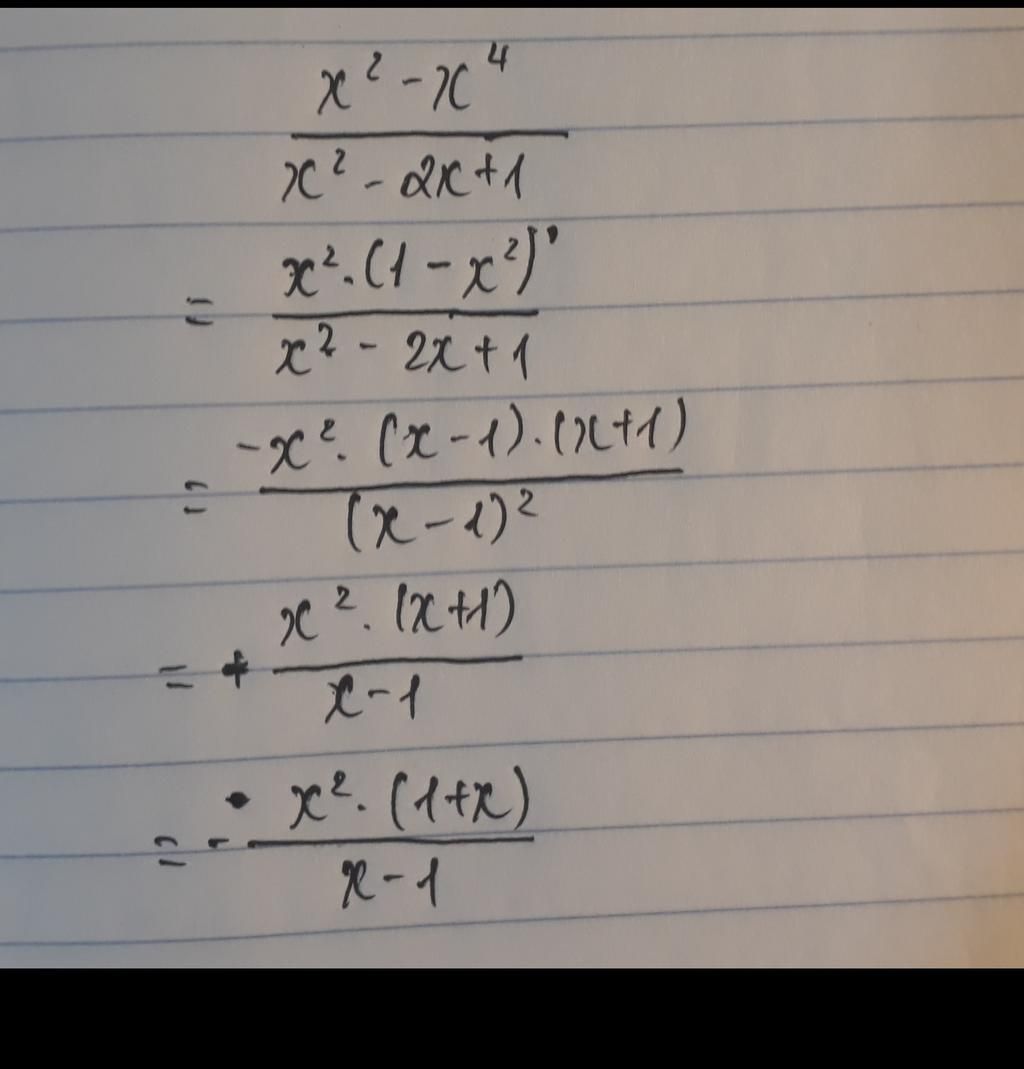 x² - x⁴
x² - 2x + 1
= x² · (1 - x²)
x² - 2x + 1
= -x² · (x - 1) · (x + 1)
(x - 1)²
= + x² · (x + 1)
x - 1
= - x² · (1 + x)
x - 1